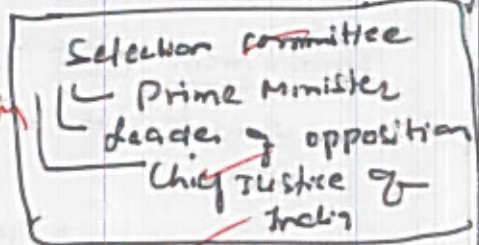 Selection committee
Prime Minister
Leader of opposition
Chief Justice of
India